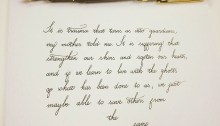 It is trauma that turns us into guardians,
my mother told me. It is suffering that
strengthen our skins and soften our hearts,
and if we learn to live with the ghosts
of what has been done to us, we just
maybe able to save others from
the
same